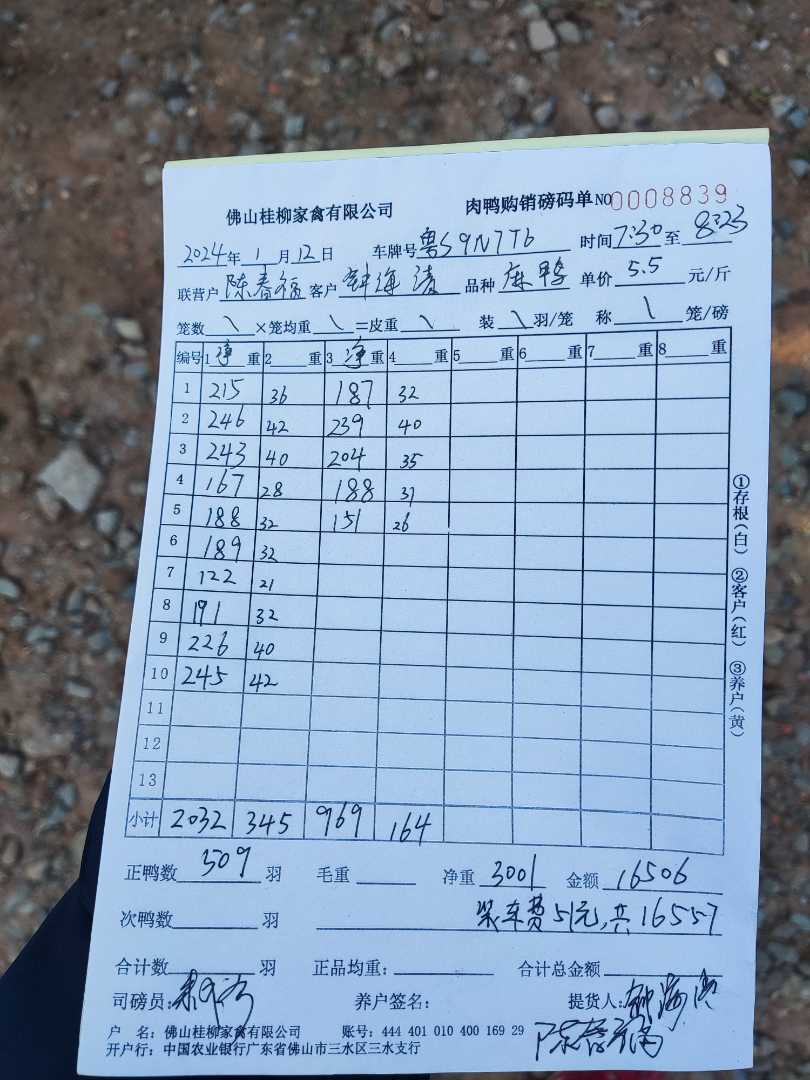 佛山桂柳家禽有限公司 肉鸭购销磅码单 NO 0008839
2024年 1 月 12 日 车牌号 粤S9N7T6 时间 7:30 至 8:23
联营户 陈春福 客户 钟海 品种 麻鸭 单价 5.5 元/斤
笼数 \ ×笼均重 \ =皮重 \ 装 \ 羽/笼 称 \ 笼/磅
编号 1 净 重 2 重 3 净 重 4 重 5 重 6 重 7 重 8 重
1 215 36 187 32
2 246 42 239 40
3 243 40 204 35
4 167 28 188 31
5 188 32 151 26
6 189 32
7 122 21
8 191 32
9 226 40
10 245 42
11
12
13
小计 2032 345 969 164
正鸭数 509 羽 毛重 净重 3001 金额 16506
次鸭数 羽 装车费51元,共16557
合计数 羽 正品均重: 合计总金额
司磅员: 养户签名: 提货人: 钟海
陈春福
户 名: 佛山桂柳家禽有限公司 账号: 444 401 010 400 169 29
开户行: 中国农业银行广东省佛山市三水区三水支行
①存根(白) ②客户(红) ③养户(黄)